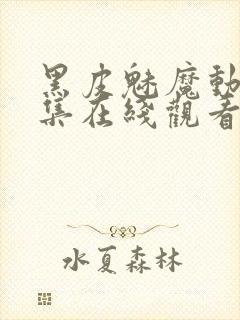 黑皮魅魔動
集在綫觀看
水夏森林